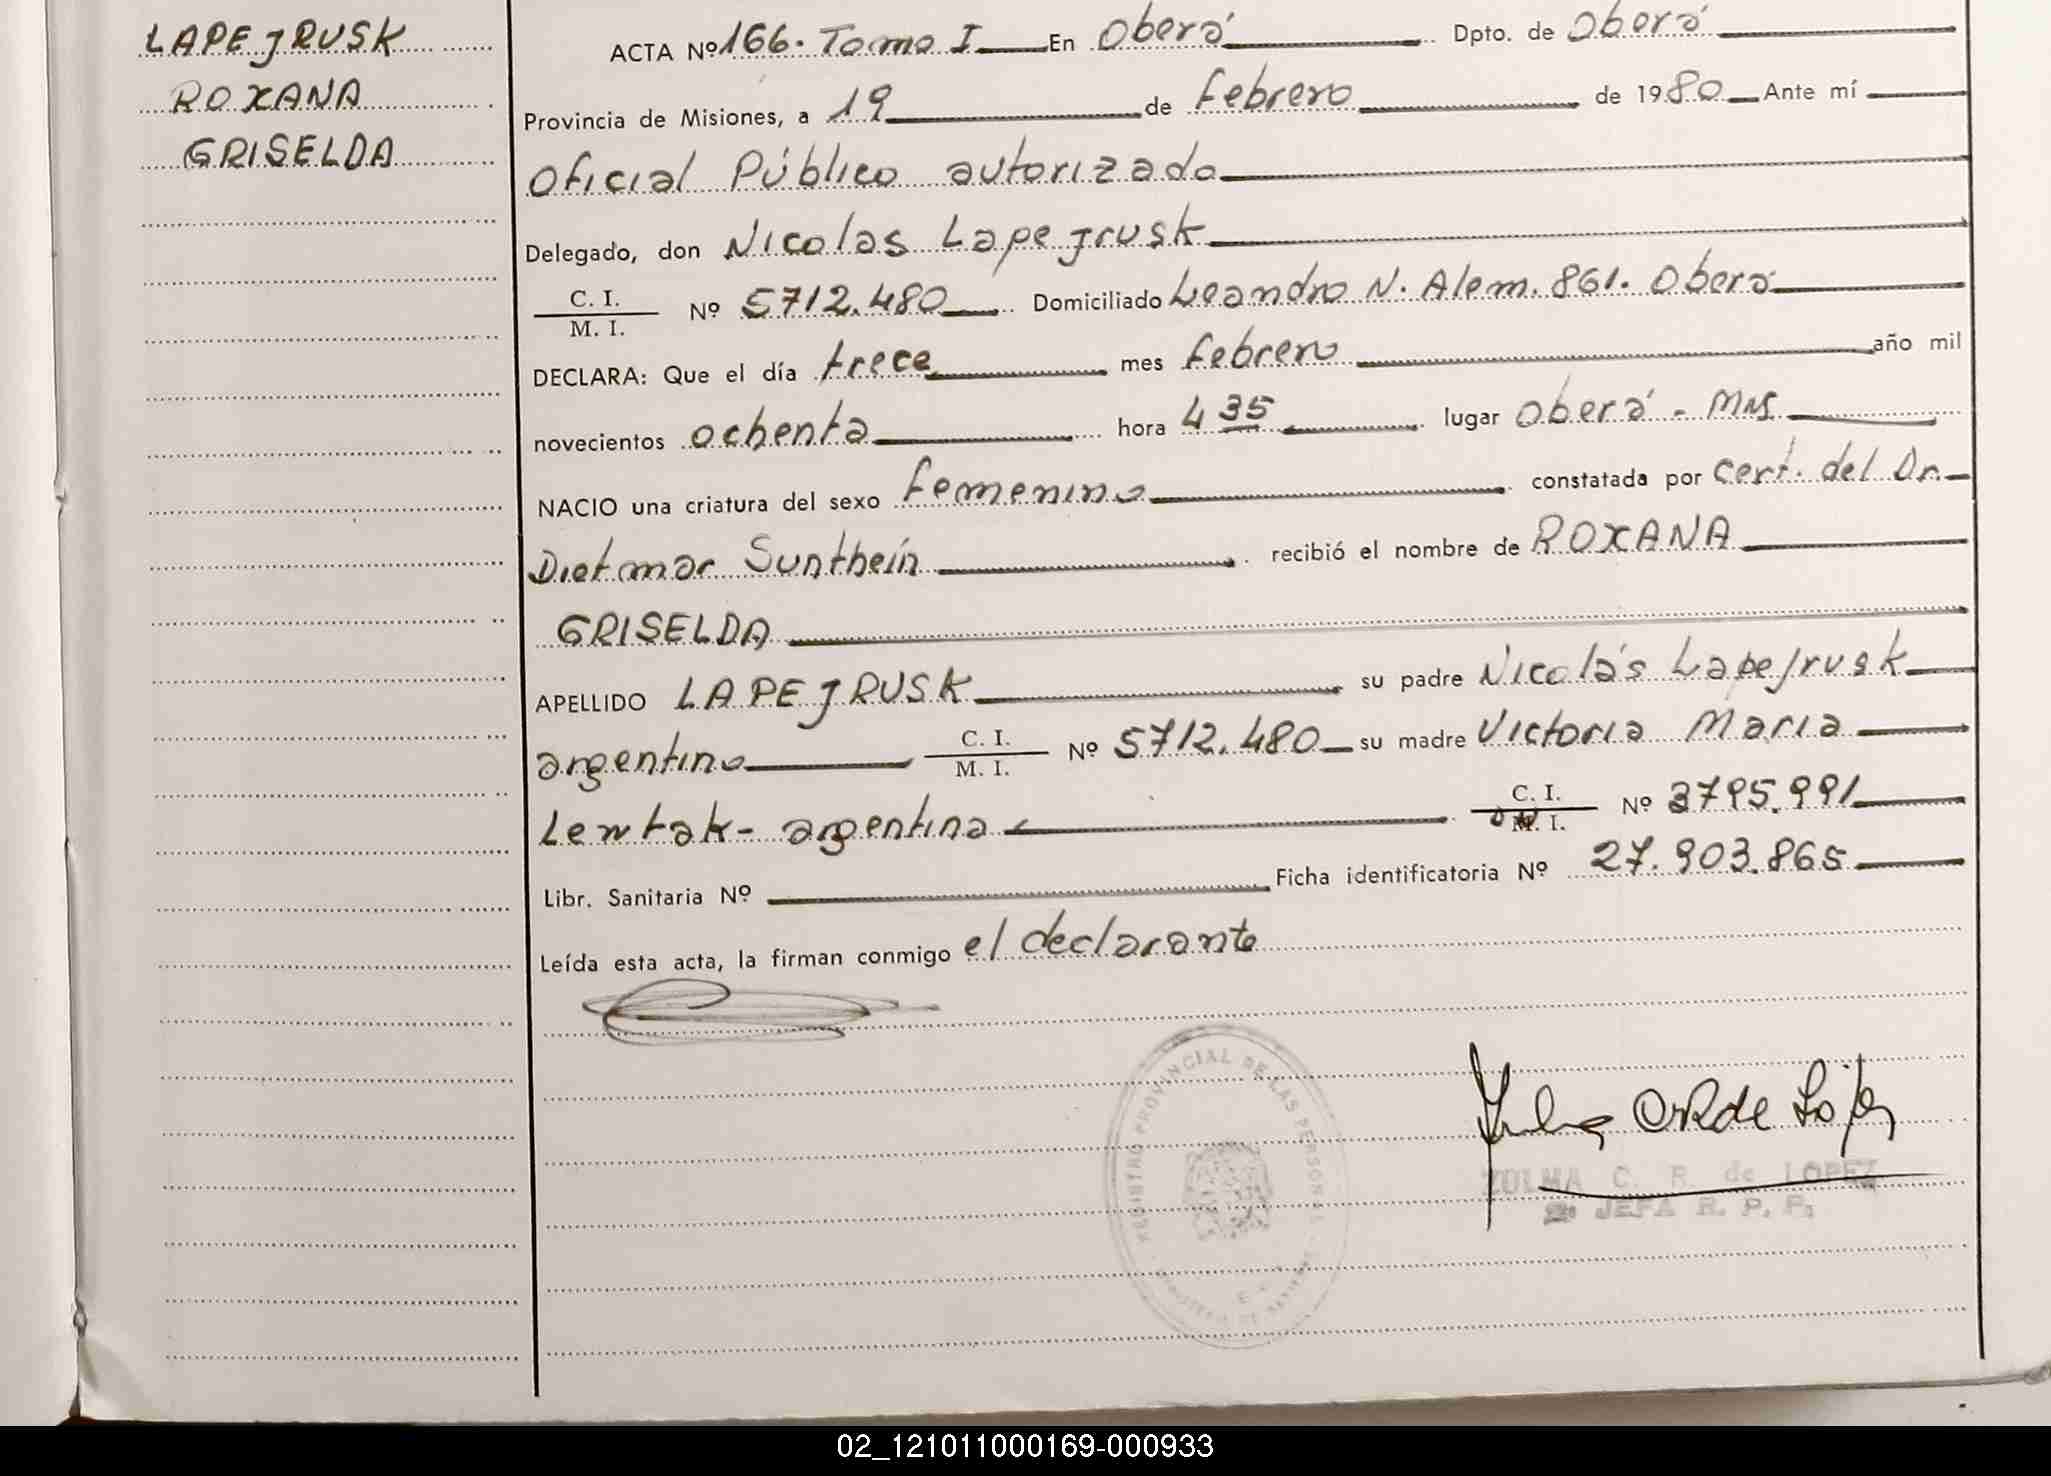 LAPEJRUSK
ROXANA
GRISELDA
ACTA Nº 166. Tomo I En Oberá Dpto. de Oberá
Provincia de Misiones, a 19 de Febrero de 1980 Ante mí
Oficial Público autorizado
Delegado, don Nicolas Lapejrusk
C. I. / M. I. Nº 5712.480 Domiciliado Leandro N. Alem. 861. Oberá
DECLARA: Que el día trece mes Febrero año mil
novecientos ochenta hora 4 35 lugar Oberá - Mns.
NACIO una criatura del sexo Femenino constatada por Cert. del Dr.
Dietmar Sunthein recibió el nombre de ROXANA
GRISELDA
APELLIDO LAPEJRUSK su padre Nicolás Lapejrusk
argentino C. I. / M. I. Nº 5712.480 su madre Victoria Maria
Lewtak - argentina C. I. / M. I. Nº 3795.991
Libr. Sanitaria Nº Ficha identificatoria Nº 27.903.865
Leída esta acta, la firman conmigo el declarante
REGISTRO PROVINCIAL DE LAS PERSONAS
Zulma C R de López
ZULMA C. R. de LOPEZ
JEFA R. P. P.
02_121011000169-000933